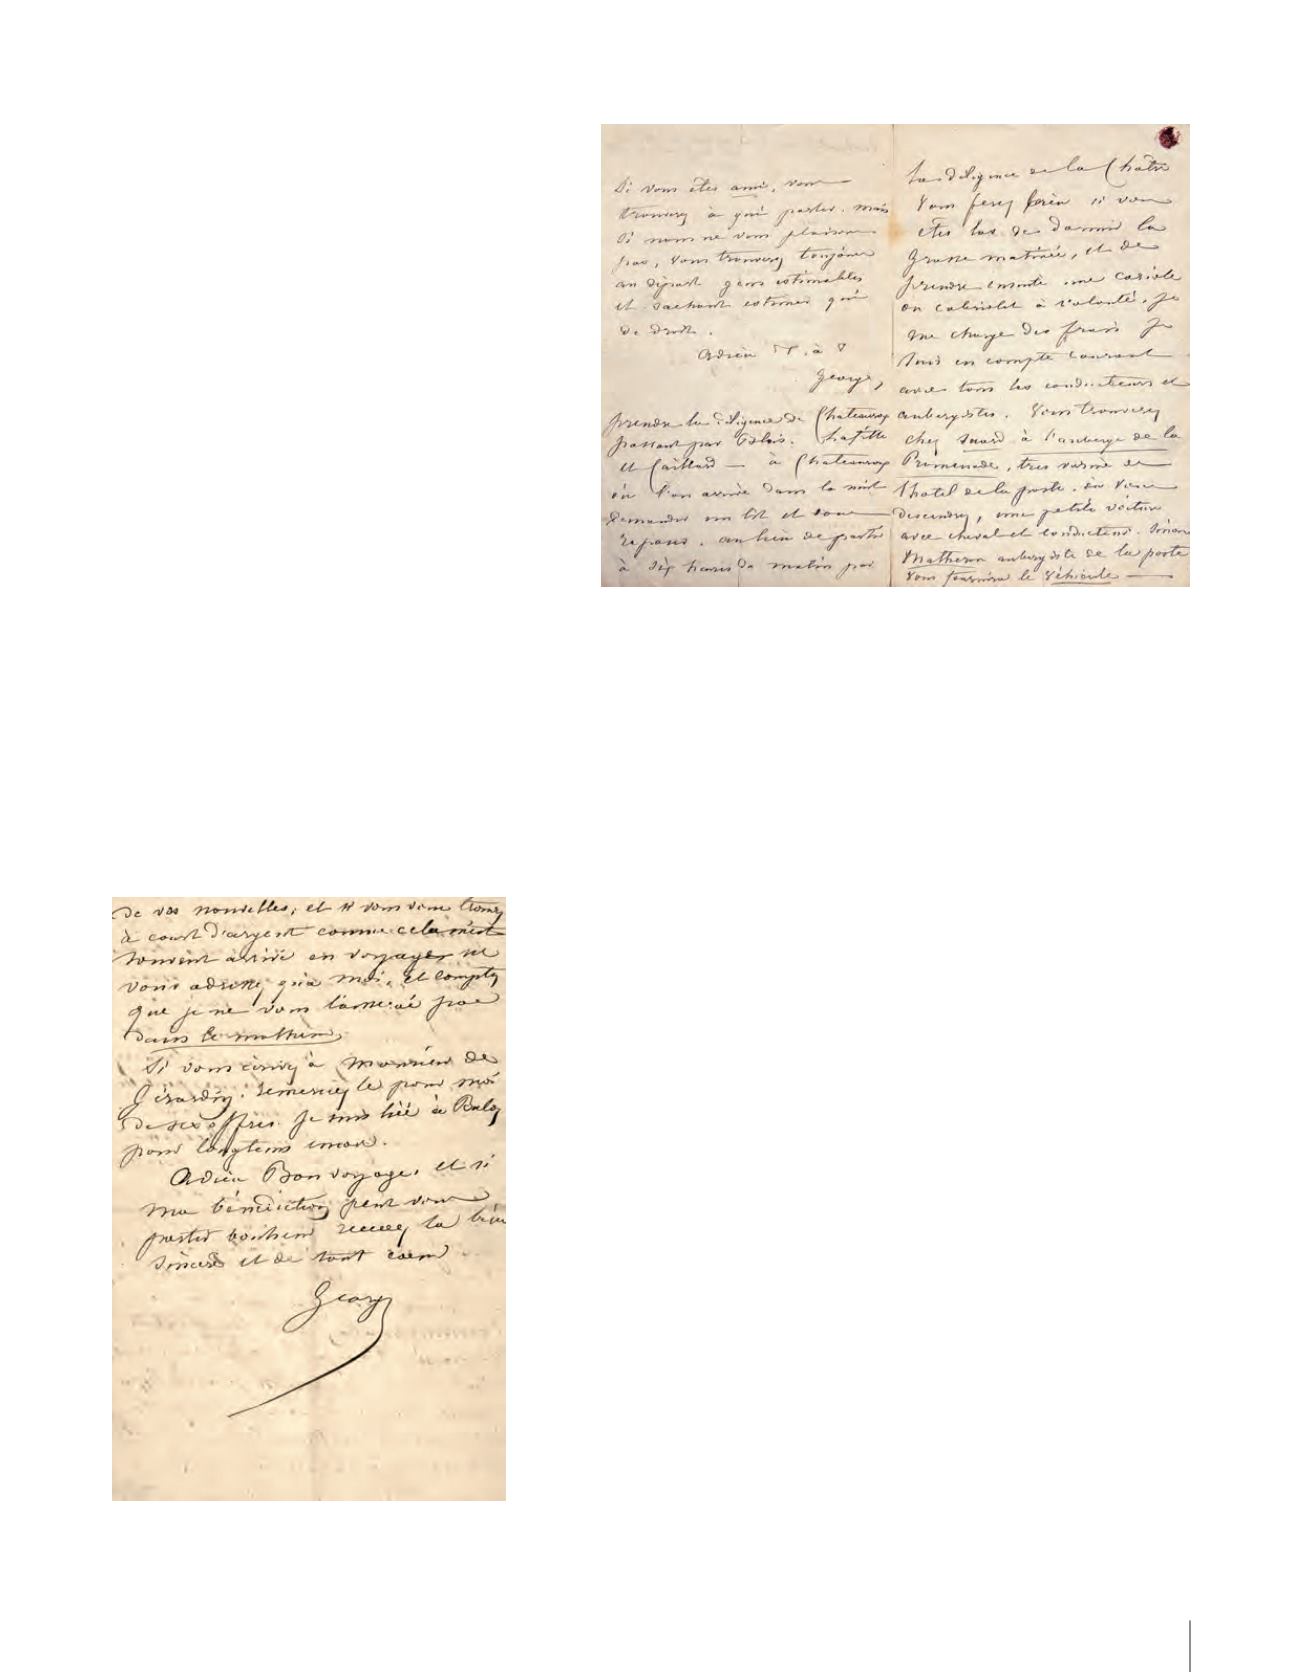 Si vous êtes ami, vous
trouverez à qui parler. mais
Si nous ne vous plaisons
pas, vous trouverez toujours
au départ gens estimables
et sachant estimer qui
de droit.
Adieu T. à V
George,
prendre la diligence de Chateauroux
passant par Blois. Lafitte
et Caillard — à Chateauroux
où l'on arrive dans la nuit
demander un lit et vous
reposer. au lieu de partir
à dix heures du matin par
la diligence de la Châtre
vous ferez bien si vous
êtes las de dormir la
grasse matinée, et de
prendre ensuite une cariole
ou cabriolet à volonté. je
me charge des frais je
suis en compte courant
avec tous les conducteurs et
aubergistes. Vous trouverez
chez Suard à l'auberge de la
Promenade, tres voisine de
l'hotel de la poste. où vous
descendrez, une petite voiture
avec cheval et conducteur. Sinon
Matheron aubergiste de la poste
vous fournira le véhicule —
de vos nouvelles, et si vous vous trouvez
à court d'argent comme cela m'est
souvent arrivé en voyage ne
vous adressez qu'à moi, et comptez
que je ne vous laisserai pas
dans le malheur
Si vous écrivez à Monsieur de
Girardin. remerciez le pour moi
de ses offres. Je suis liée à Buloz
pour longtems encore.
Adieu Bon voyage. et si
ma bénédiction peut vous
porter bonheur recevez la bien
sincère et de tout cœur
George